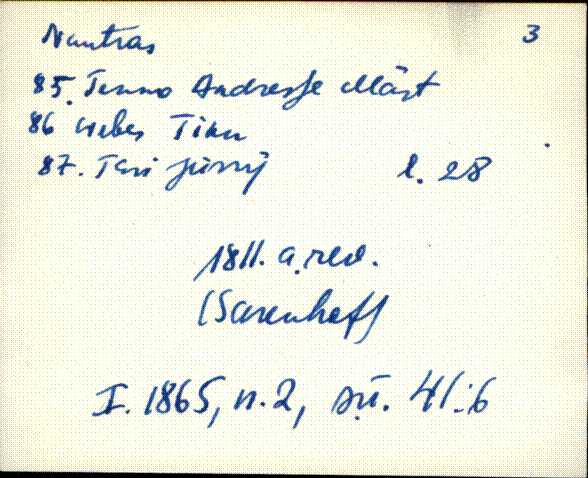 Nautras 3
85. Tenno Andresse Märt
86 Weber Tinu
87. Teni Jürri l. 28
1811. a. rev.
(Sarenhof)
I. 1865, n. 2, sü. 41:6